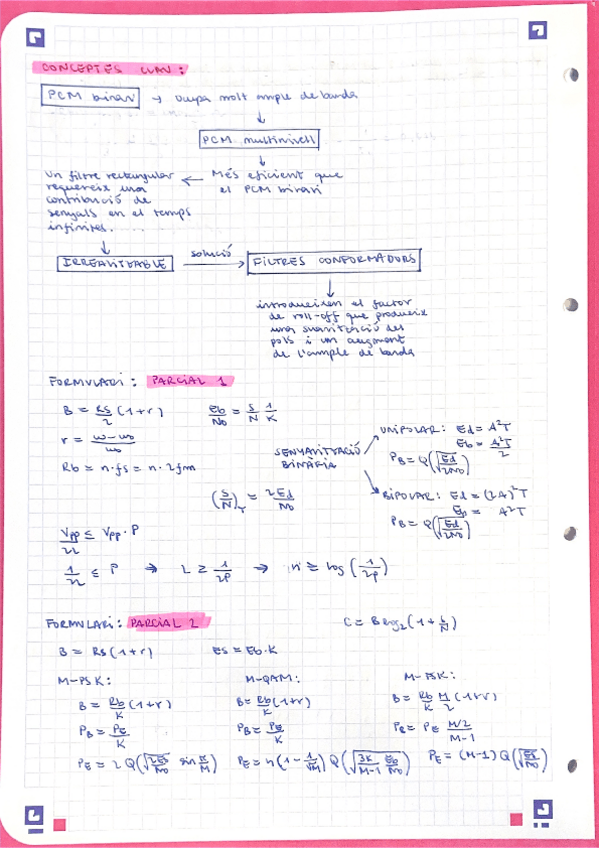 CONCEPTES CLAU:
PCM binari → Ocupa molt ample de banda
↓
PCM multinivell
↓
Més eficient que
el PCM binari
←
Un filtre rectangular
requereix una
contribució de
senyals en el temps
infinites.
↓
IRREALITZABLE solució → FILTRES CONFORMADORS
↓
introdueixen el factor
de roll-off que produeix
una suavització del
pols i un augment
de l'ample de banda
FORMULARI: PARCIAL 1
B = Rs/2 (1+r)
Eb/No = S/N 1/K
r = (w-wo)/wo
Rb = n·fs = n·2fm
(S/N)T = 2Ed/No
SENYALITZACIÓ
BINÀRIA
UNIPOLAR: Ed = A²T
Eb = A²T/2
PB = Q(√(Ed/2No))
BIPOLAR: Ed = (2A)²T
Eb = A²T
PB = Q(√(Ed/2No))
Vpp/2L ≤ Vpp·P
1/2L ≤ P → L ≥ 1/2P → n ≥ log(1/2P)
FORMULARI: PARCIAL 2
C = B log₂(1+S/N)
B = Rs(1+r) Es = Eb·K
M-PSK:
B = Rb/K (1+r)
PB = PE/K
PE = 2Q(√(2Es/No) sin π/M)
M-QAM:
B = Rb/K (1+r)
PB = PE/K
PE = 4(1-1/√M) Q(√(3K/(M-1) Eb/No))
M-FSK:
B = Rb/K M/2 (1+r)
PB = PE (M/2)/(M-1)
PE = (M-1)Q(√(Es/No))